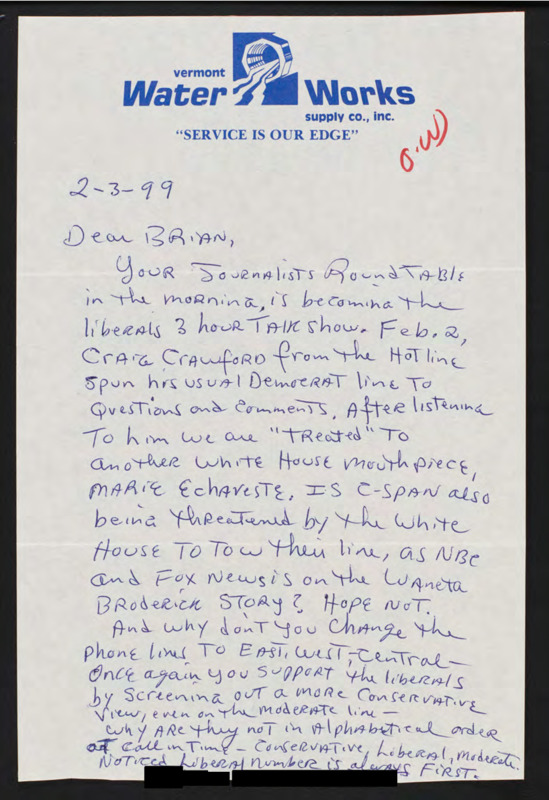 vermont
Water Works
supply co., inc.
"SERVICE IS OUR EDGE"
O.W)
2-3-99
Dear BRIAN,
YOUR JOURNALISTS ROUNDTABLE
in the morning, is becoming the
liberals 3 hour TALK show. Feb. 2,
CRAIG CRAWFORD from the HOTline
spun his usual DEMOCRAT line TO
Questions and comments. After listening
To him we are "TREATED" TO
another WHITE HOUSE mouthpiece,
MARIE EchAVESTE. IS C-SPAN also
being threatened by the White
HOUSE TO TOW their line, as NBC
and FOX NEWS is on the WANETA
BRODERICK STORY? HOPE NOT.
And why don't you change the
phone lines TO EAST, WEST, central—
ONCE again you SUPPORT the liberals
by SCREENING OUT a MORE CONSERVATIVE
view, even on the moderate line —
Why ARE they not in Alphabetical order
at call in Time — CONSERVATIVE, Liberal, moderate.
NOTICED Liberal number is always FIRST.